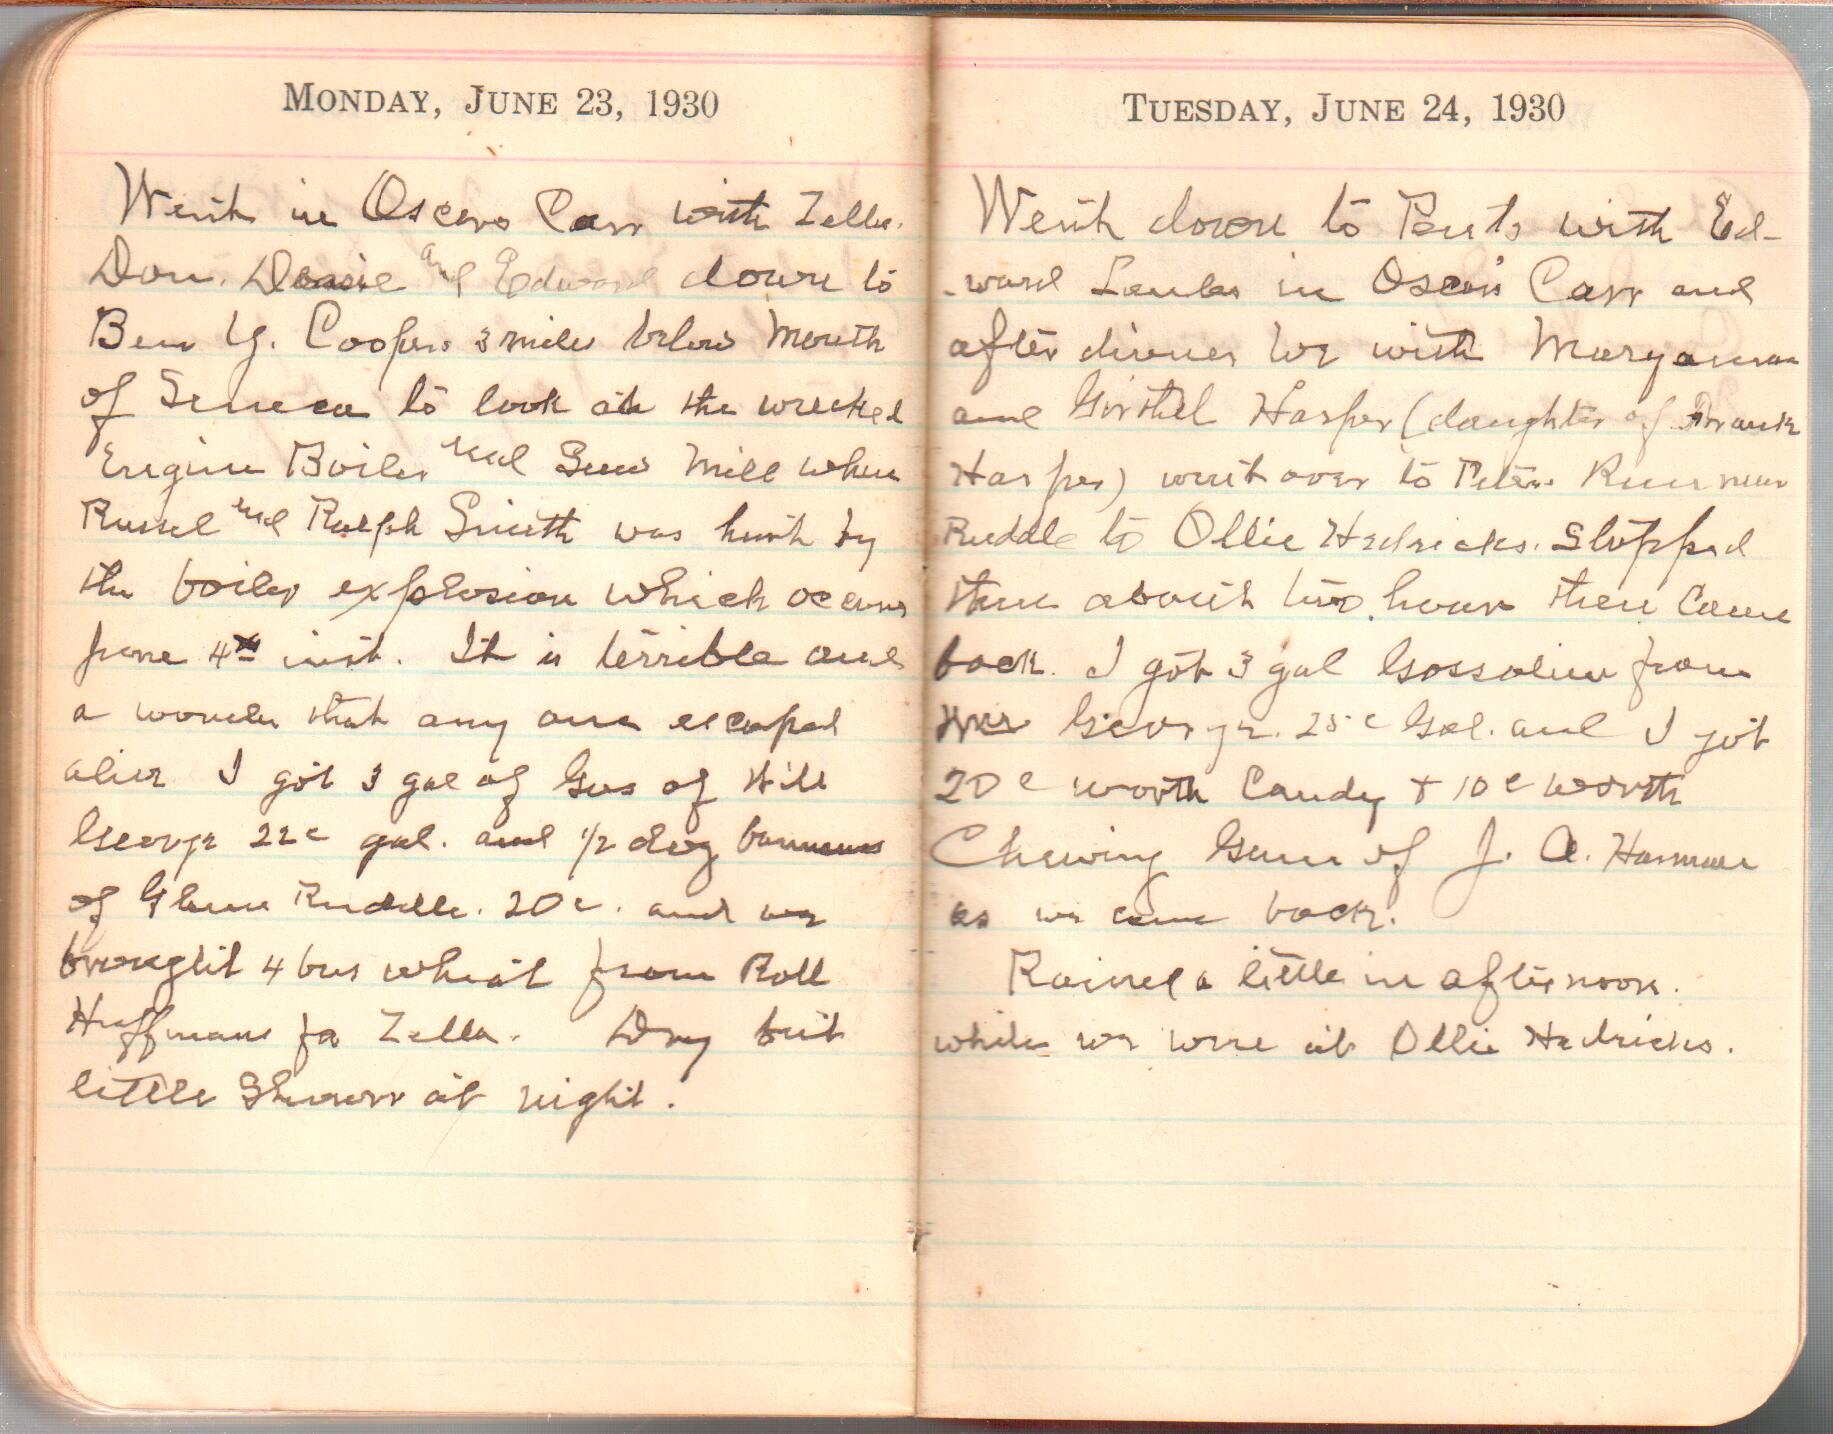 MONDAY, JUNE 23, 1930
Went in Oscars Carr with Zella.
Don. Dessie and Edward down to
Ben Y. Coopers 3 miles below Mouth
of Seneca to look at the wrecked
Engine Boiler and Saw Mill where
Russel and Ralph Smith was hurt by
the boiler explosion which occurrs
june 4th inst. It is terrible and
a wonder that any one escaped
alive I got 3 gal of Gas of Will
George 22c gal. and 1/2 doz bannanas
of Glenn Ruddle. 20c. and we
brought 4 bus wheat from Roll
Huffmans for Zella. Dry but
little Showrr at night.
TUESDAY, JUNE 24, 1930
Went down to with Ed-
-ward in Oscar's Carr and
after dinner we with Maryanna
and Harper (daughter of Frank
Harper) went over to Peters Run near
Ruddle to Ollie Hedricks. Stopped
there about two hours then Came
back. I got 3 gal Gassoline from
George. 25c Gal. and I got
20c worth Candy + 10c worth
Chewing Gum of J. A. Harman
as we came back.
Rained a little in afternoon.
while we were at Ollie Hedricks.